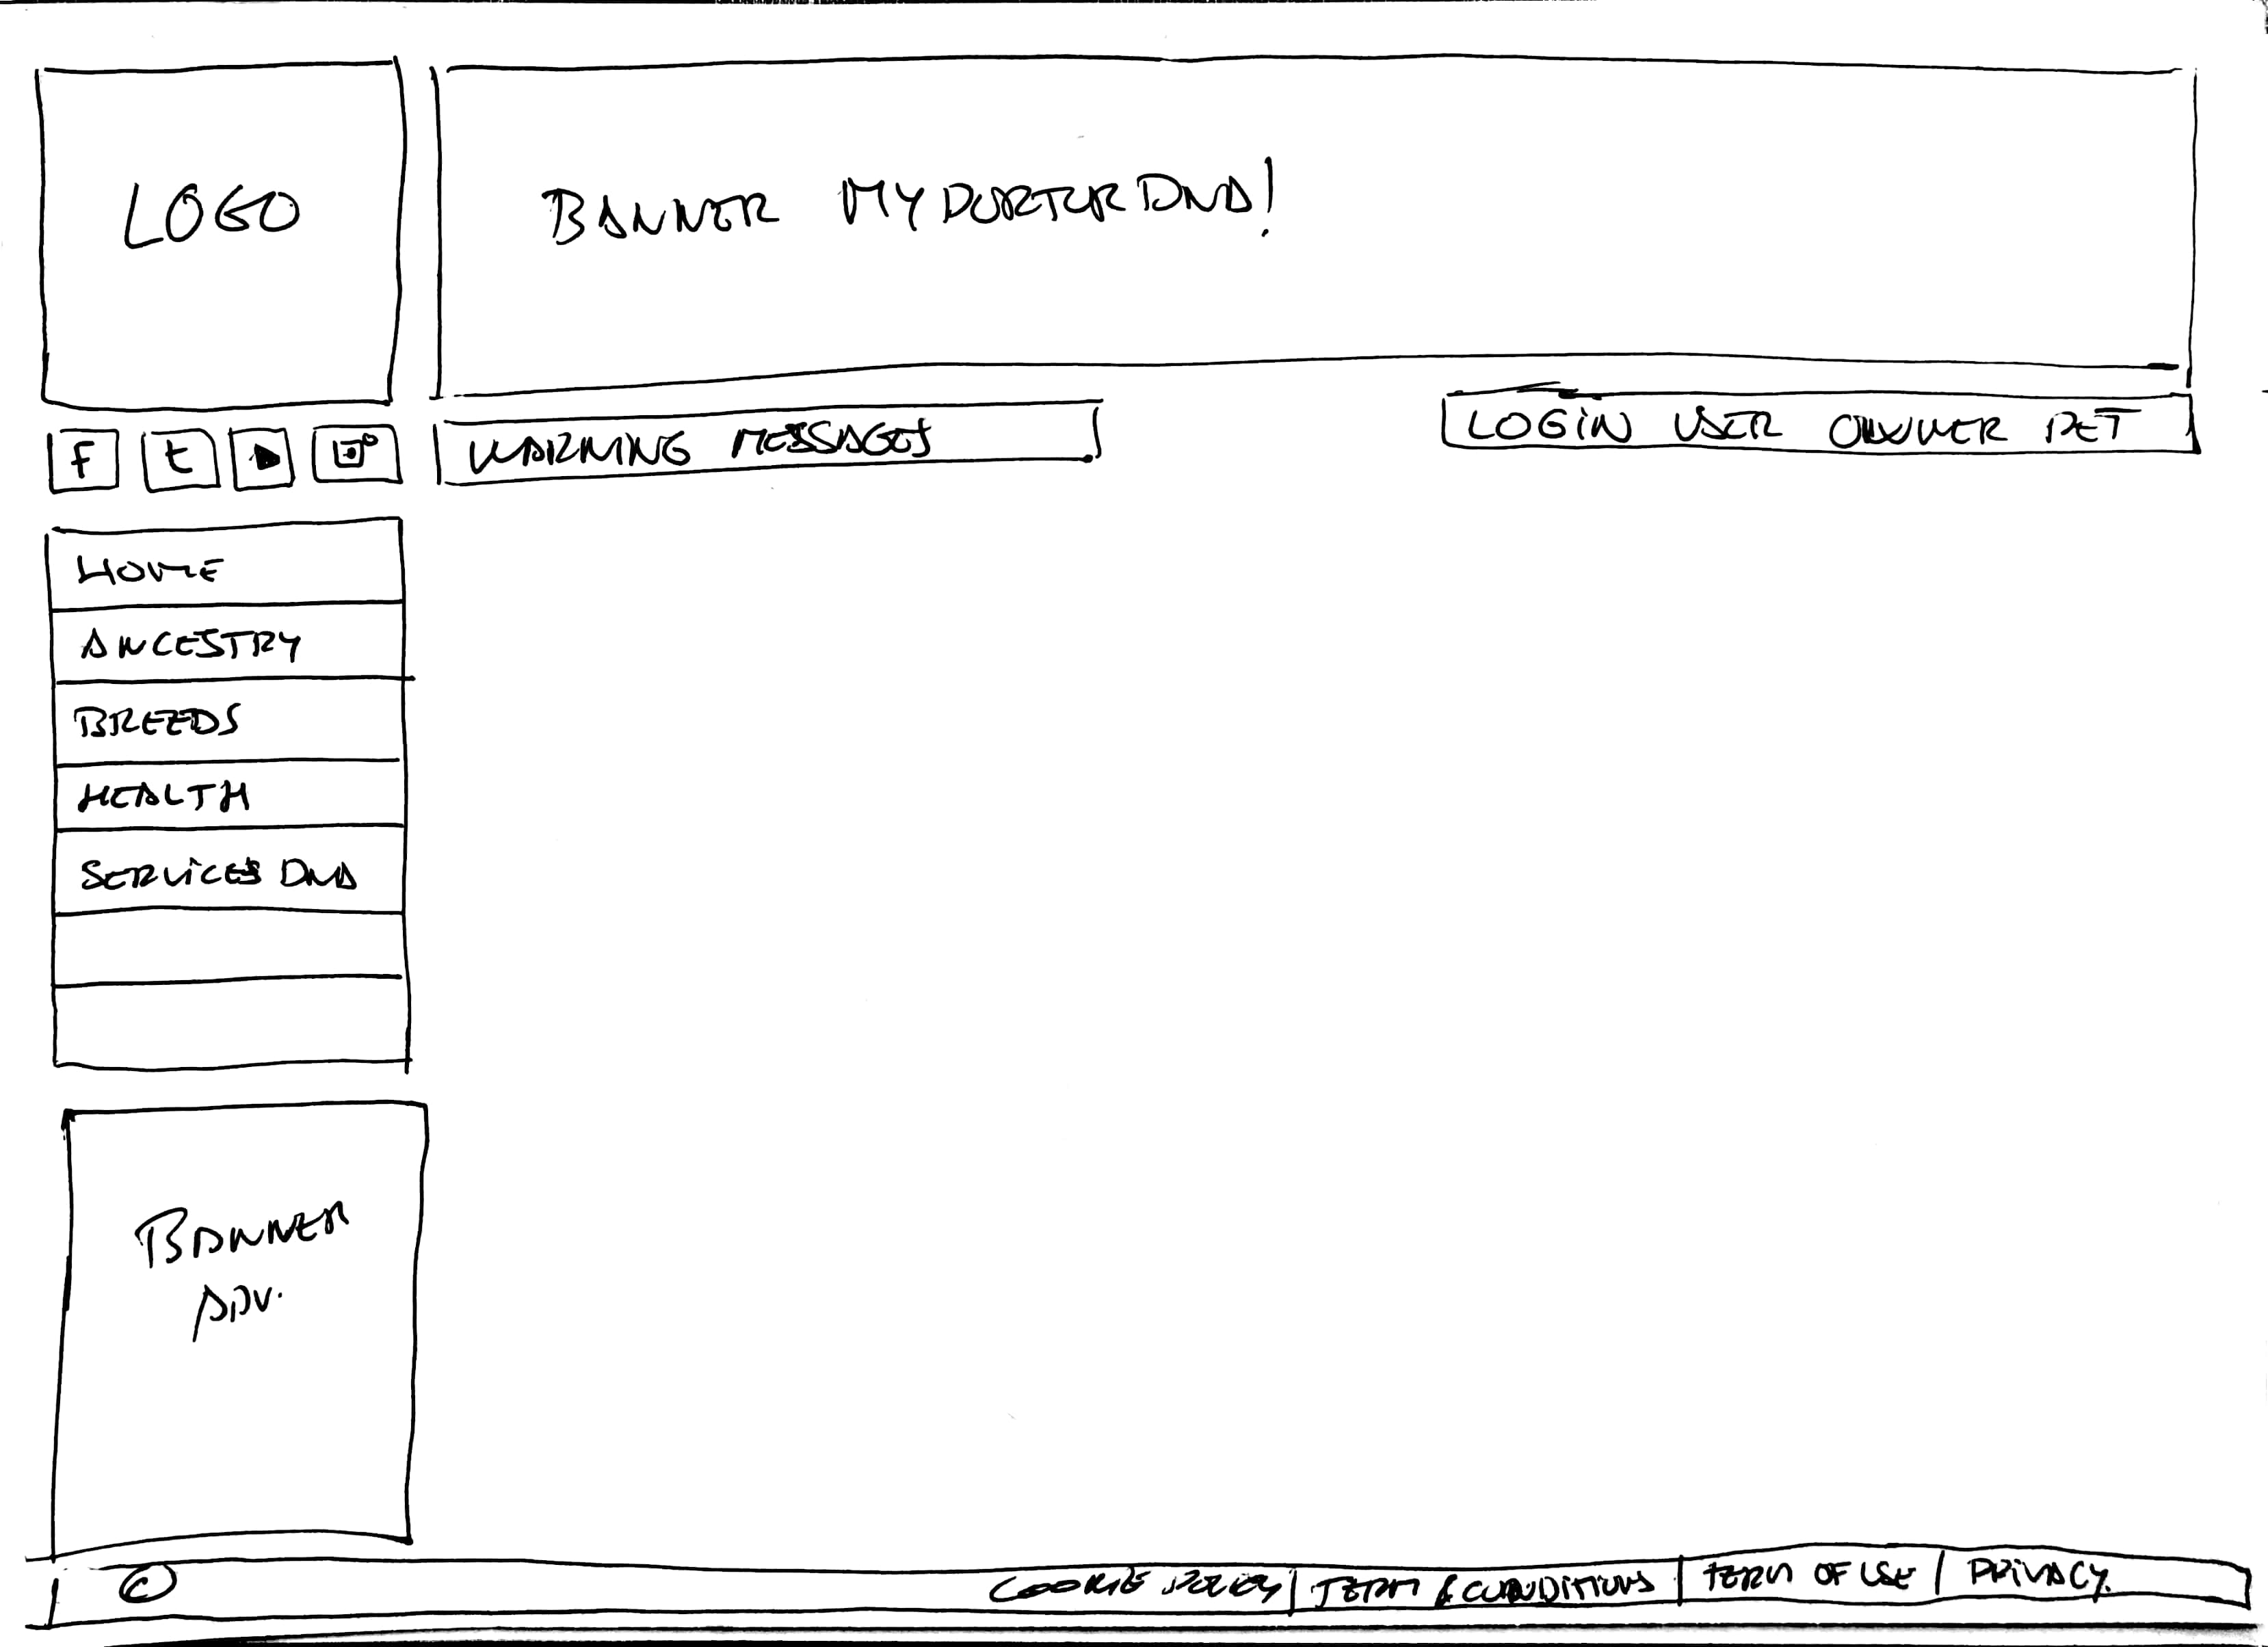 LOGO
BANNER MYDORTORDNA!
f t
WARMING MESSAGES
LOGIN USER OWNER PET
HOME
ANCESTRY
BREEDS
HEALTH
SERVICES DNA
BANNER
ADV.
© COOKIE POLICY | TERM & CONDITIONS | TERM OF USE | PRIVACY.